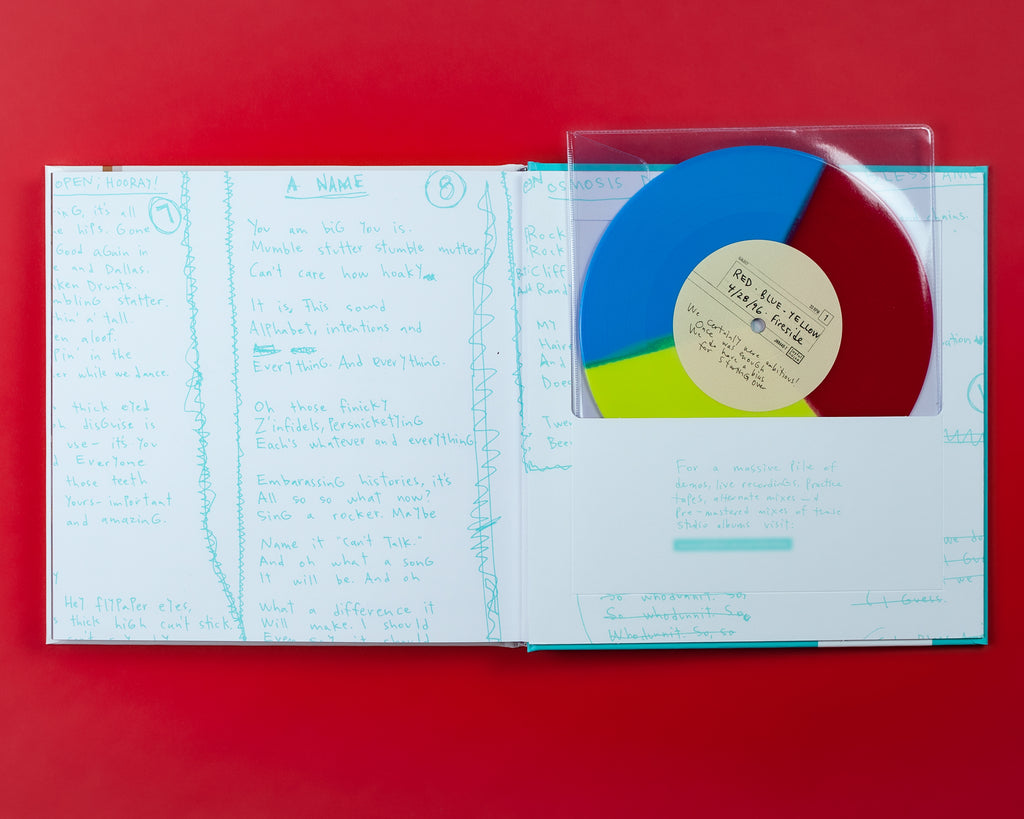 OPEN; HOORAY!
7
ing, it's all
hips. Gone
Good again in
and Dallas.
Drunts.
stutter.
a' tall.
aloof.
in the
while we dance.
thick eyed
disguise is
use - it's you
Everyone
those teeth
Yours - important
and amazing.
Hey flypaper eyes,
thick high can't stick.
A NAME
8
You am big You is.
Mumble stutter stumble mutter
Can't care how hoaky
It is, This sound
Alphabet, intentions and
Everything. And everything.
Oh those finicky
Z'infidels, Persnicketying
Each's whatever and everything
Embarassing histories, it's
All so so what now?
Sing a rocker. Maybe
Name it "Can't Talk."
And oh what a song
It will be. And oh
What a difference it
Will make. I should
OSMOSIS
Rock
Rock
Cliff
And Rand
My
Hair
And
Does
Twe
Been
RED · BLUE · YELLOW
4/28/96 · Fireside
We certainly were ambitious!
Once was enough
We do have a bias
for starting over
For a massive pile of
demos, live recordings, practice
tapes, alternate mixes and
Pre-mastered mixes of these
studio albums visit:
So whodunnit. So,
So whodunnit. So,
Whodunnit. So, so
I Guess.